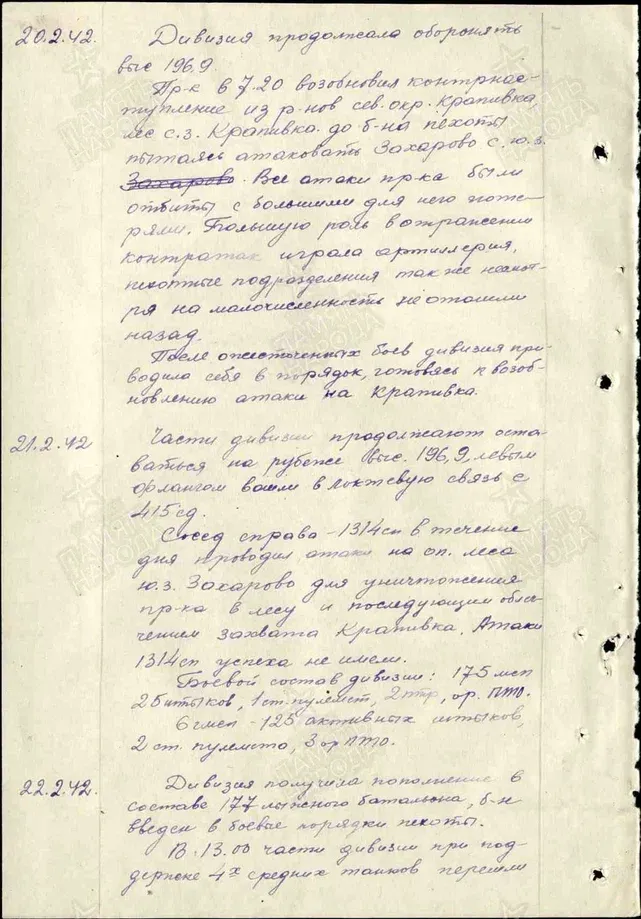 20.2.42. Дивизия продолжала оборонять
выс 196,9.
Пр-к в 7.20 возобновил контрнас-
тупление из р-нов сев. окр. Крапивка,
лес с.з. Крапивка. до б-на пехоты
пытаясь атаковать Захарово с ю.з.
Захарово. Все атаки пр-ка были
отбиты с большими для него поте-
рями. Большую роль в отражении
контратак играла артиллерия,
пехотные подразделения также несмот-
ря на малочисленность не отошли
назад.
После ожесточенных боев дивизия при-
водила себя в порядок, готовясь к возоб-
новлению атаки на Крапивка.
21.2.42 Части дивизии продолжают оста-
ваться на рубеже выс. 196,9 левым
флангом вошли в локтевую связь с
415 сд.
Сосед справа - 1314 сп в течение
дня проводил атаки на оп. леса
ю.з. Захарово для уничтожения
пр-ка в лесу и последующим облег-
чением захвата Крапивка. Атаки
1314 сп успеха не имели.
Боевой состав дивизии: 175 мсп
25 штыков, 1 ст. пулемет, 2 птр, ор. ПТО.
6 гмсп - 125 активных штыков,
2 ст. пулемета, 3 ор ПТО.
22.2.42. Дивизия получила пополнение в
составе 177 лыжного батальона, б-н
введен в боевые порядки пехоты.
В 13.00 части дивизии при под-
держке 4х средних танков перешли
ПАМЯТЬ НАРОДА